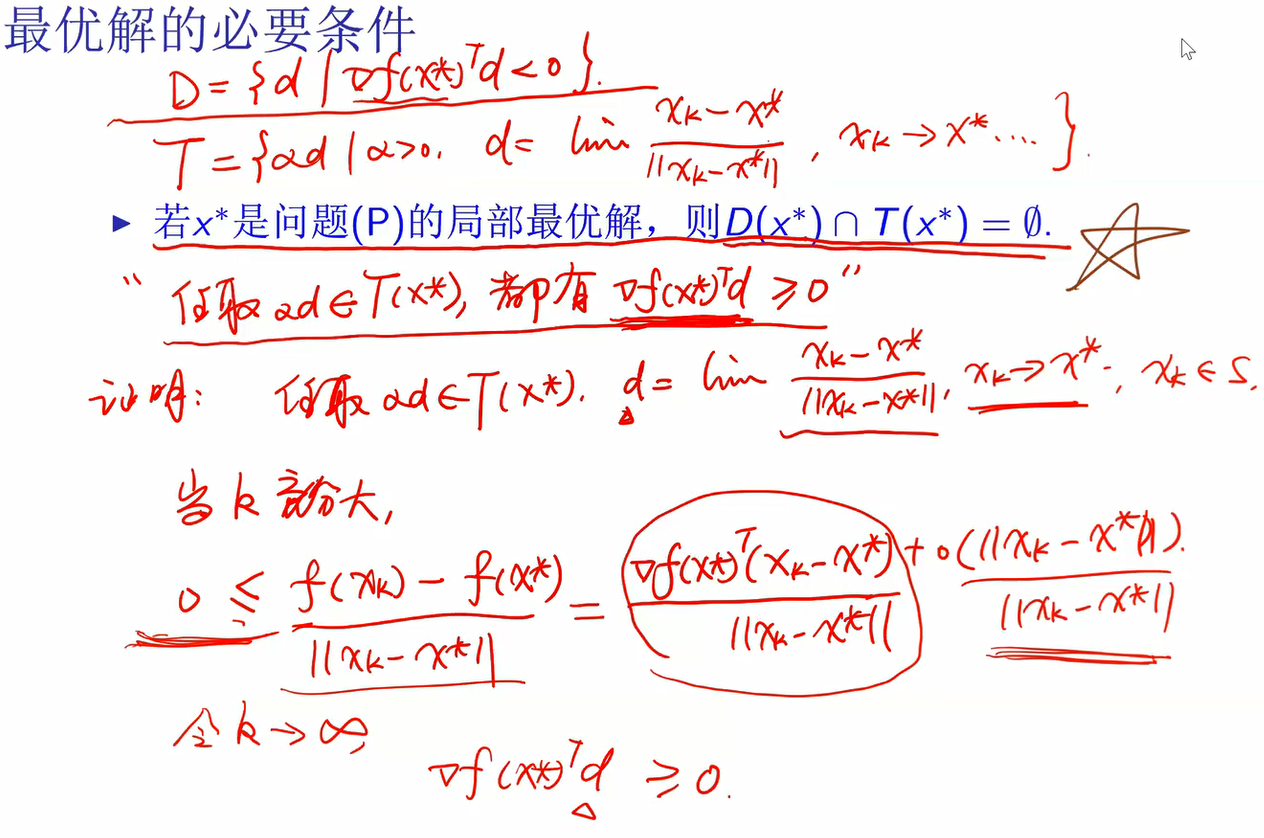 最优解的必要条件
D = {d | ∇f(x*)ᵀd < 0}.
T = {αd | α>0, d = lim (x_k − x*)/||x_k − x*||, x_k → x* ....}.
▶ 若x*是问题(P)的局部最优解，则D(x*) ∩ T(x*) = ∅.
“任取 αd ∈ T(x*), 都有 ∇f(x*)ᵀd ≥ 0”
证明: 任取 αd ∈ T(x*). d = lim (x_k − x*)/||x_k − x*||, x_k → x*, x_k ∈ S,
当 k 充分大,
0 ≤ (f(x_k) − f(x*))/||x_k − x*|| = ∇f(x*)ᵀ(x_k − x*)/||x_k − x*|| + o(||x_k − x*||)/||x_k − x*||.
令 k → ∞,
∇f(x*)ᵀd ≥ 0.